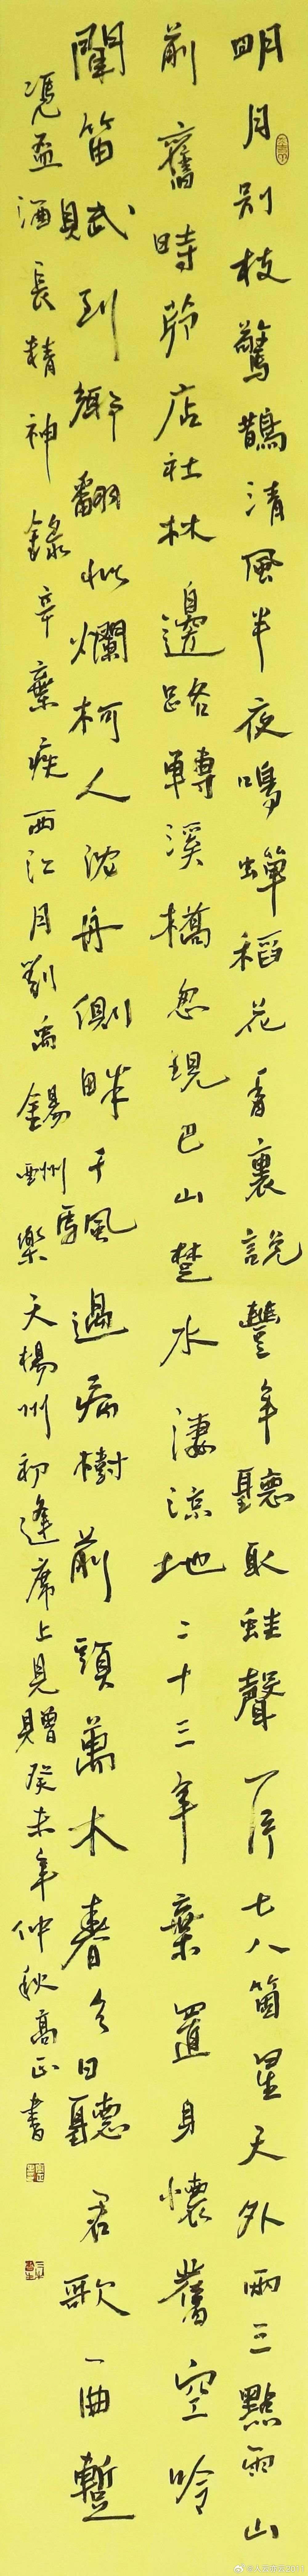 明月别枝驚鵲清風半夜鳴蟬稻花香裏說豐年聽取蛙聲一片七八箇星天外兩三點雨山
前舊時茆店社林邊路轉溪橋忽現巴山楚水淒涼地二十三年棄置身懷舊空吟
聞笛賦到鄉翻似爛柯人沈舟側畔千帆過病樹前頭萬木春今日聽君歌一曲暫
凴盃酒長精神錄辛棄疾西江月劉禹錫酬樂天楊州初逢席上見贈癸未年仲秋高正書